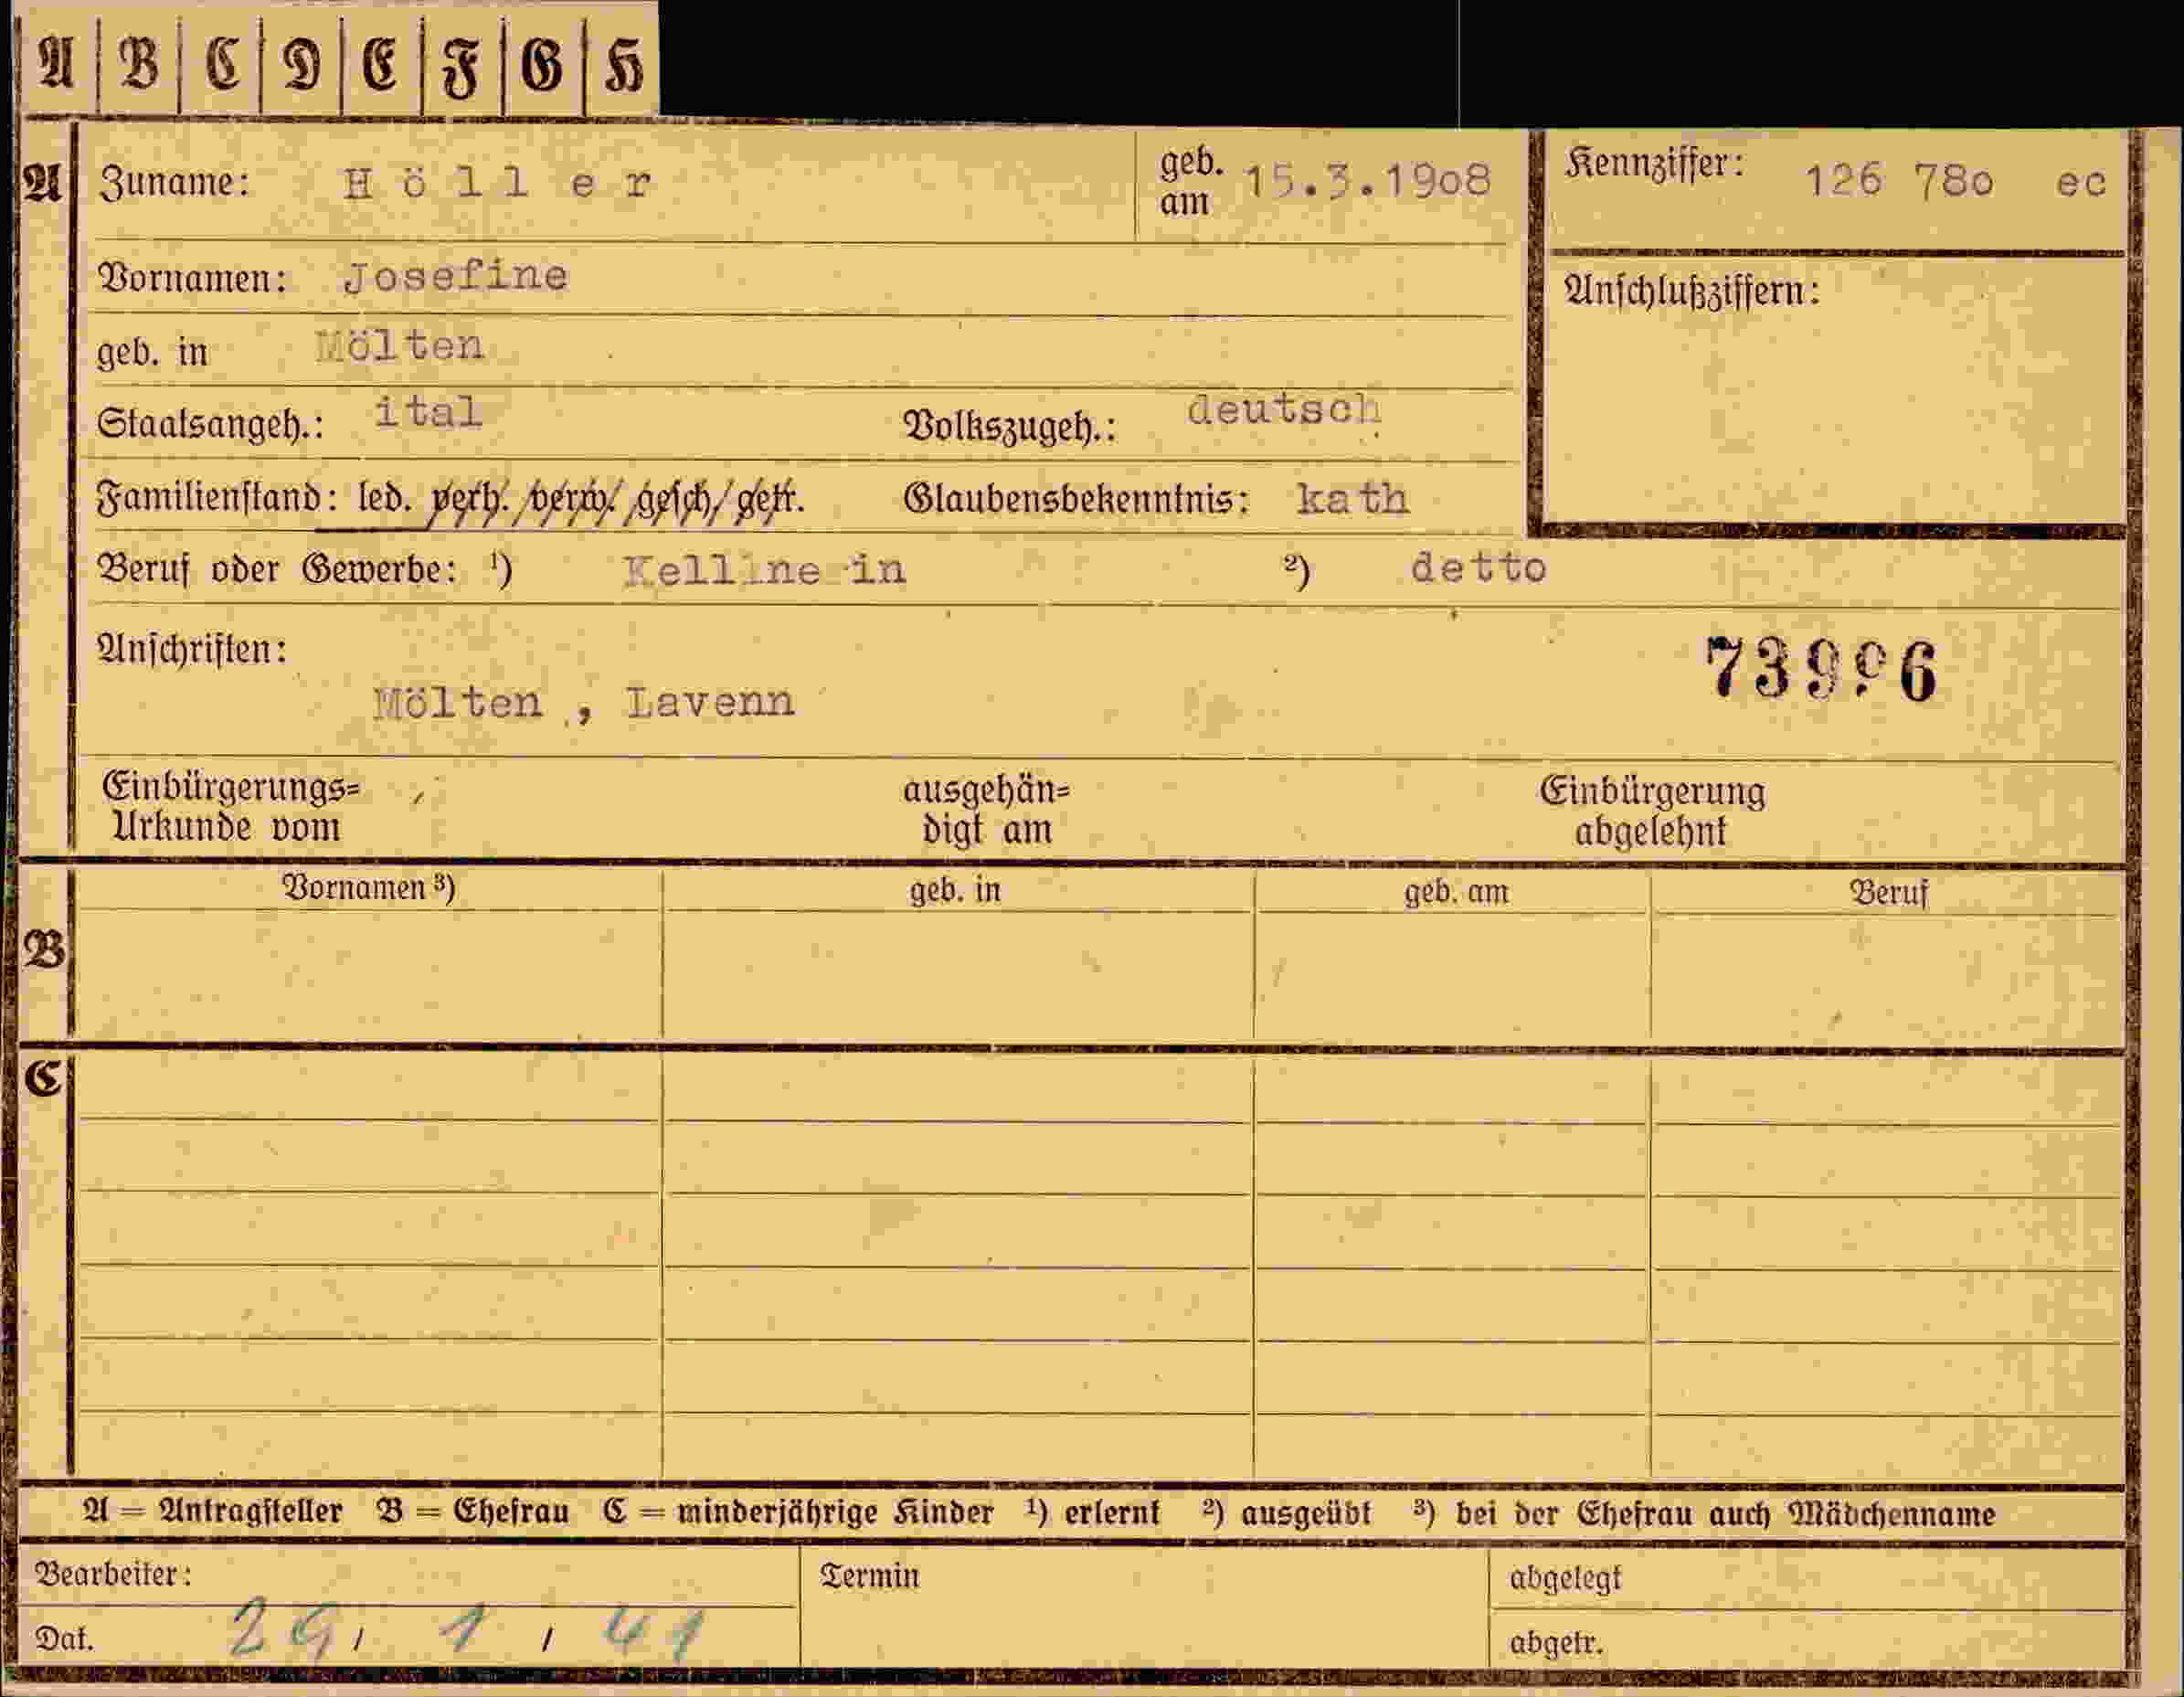 A B C D E F G H
A Zuname: Höller geb. am 15.3.1908 Kennziffer: 126 780 ec
Vornamen: Josefine Anschlußziffern:
geb. in Mölten
Staatsangeh.: ital Volkszugeh.: deutsch
Familienstand: led. verh. verw. gesch. getr. Glaubensbekenntnis: kath
Beruf oder Gewerbe: ¹) Kellnein ²) detto
Anschriften:
Mölten , Lavenn
Einbürgerungs= ausgehän= Einbürgerung
Urkunde vom digt am abgelehnt
Vornamen ³) geb. in geb. am Beruf
B
C
A = Antragsteller B = Ehefrau C = minderjährige Kinder ¹) erlernt ²) ausgeübt ³) bei der Ehefrau auch Mädchenname
Bearbeiter: Termin abgelegt
Dat. 29, 1, 41 abgetr.